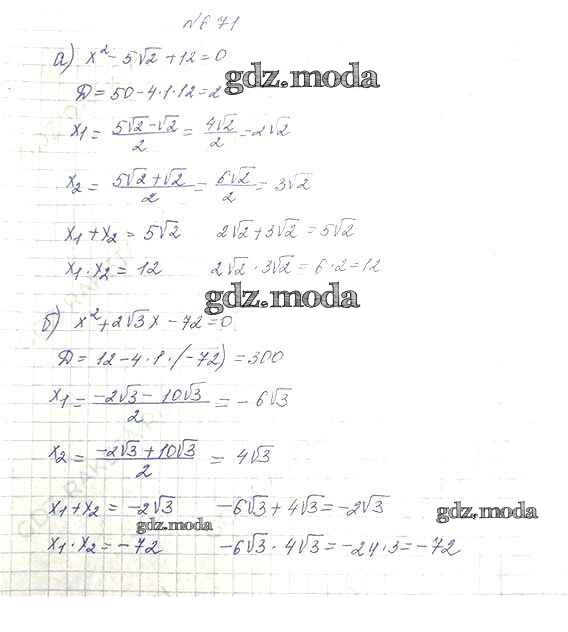 №671
а) x² - 5√2 + 12 = 0
gdz.moda
Д = 50 - 4·1·12 = 2
x₁ = (5√2 - √2)/2 = 4√2/2 = 2√2
x₂ = (5√2 + √2)/2 = 6√2/2 = 3√2
x₁ + x₂ = 5√2 2√2 + 3√2 = 5√2
x₁ · x₂ = 12 2√2 · 3√2 = 6·2 = 12
gdz.moda
б) x² + 2√3 x - 72 = 0
Д = 12 - 4·1·(-72) = 300
x₁ = (-2√3 - 10√3)/2 = -6√3
x₂ = (-2√3 + 10√3)/2 = 4√3
x₁ + x₂ = -2√3 -6√3 + 4√3 = -2√3
gdz.moda
gdz.moda
x₁ · x₂ = -72 -6√3 · 4√3 = -24·3 = -72